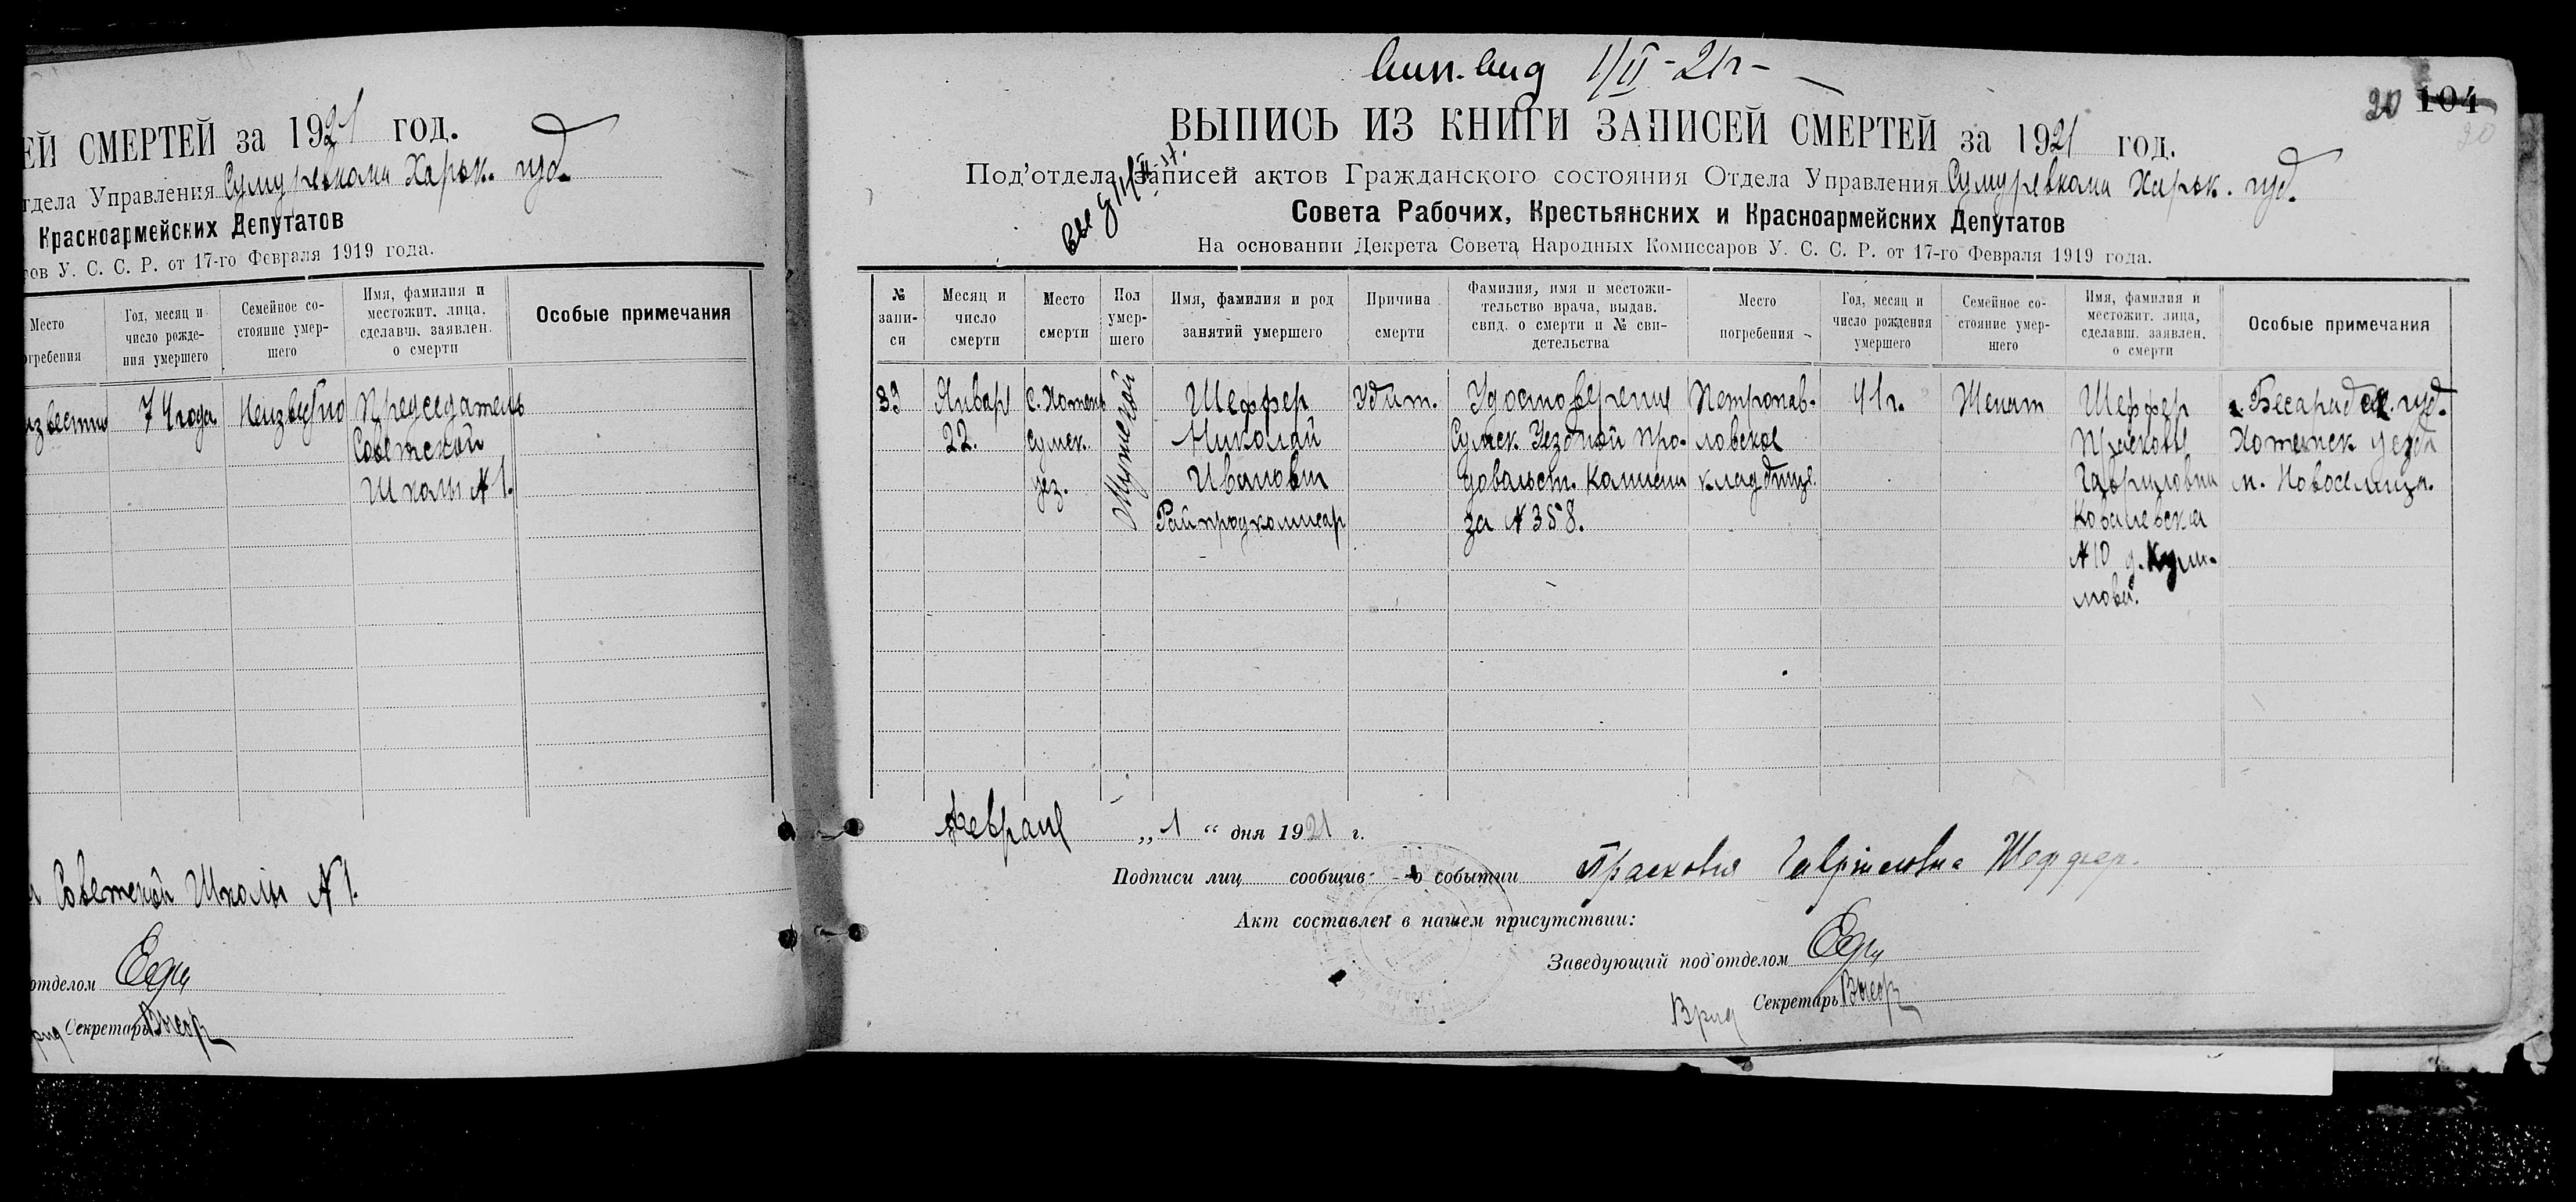 ЕЙ СМЕРТЕЙ за 1921 год.
тдела Управления Сумуревкома Харьк. губ.
Красноармейских Депутатов
ов У. С. С. Р. от 17-го Февраля 1919 года.
Место
огребения
Год, месяц и
число рожде-
ния умершего
Семейное со-
стояние умер-
шего
Имя, фамилия и
местожит. лица,
сделавш. заявлен.
о смерти
Особые примечания
74 года
Неизвестно
Председатель
Советской
Школы № 1.
Советской Школы № 1.
отделом
Секретарь
1/II-21г-
20 104
20
ВЫПИСЬ ИЗ КНИГИ ЗАПИСЕЙ СМЕРТЕЙ за 1921 год.
Под'отдела записей актов Гражданского состояния Отдела Управления Сумуревкома Харьк. губ.
Совета Рабочих, Крестьянских и Красноармейских Депутатов
На основании Декрета Совета Народных Комиссаров У. С. С. Р. от 17-го Февраля 1919 года.
№
запи-
си
Месяц и
число
смерти
Место
смерти
Пол
умер-
шего
Имя, фамилия и род
занятий умершего
Причина
смерти
Фамилия, имя и местожи-
тельство врача, выдав.
свид. о смерти и № сви-
детельства
Место
погребения
Год, месяц и
число рождения
умершего
Семейное со-
стояние умер-
шего
Имя, фамилия и
местожит. лица,
сделавш. заявлен.
о смерти
Особые примечания
33
Января
22.
с. Хотень
Сумск.
уез.
Мужской
Шеффер
Николай
Иванович
Райпродкомисар
Убит.
Удостоверение
Сумск. Уездной Про-
довольст. Комисии
за № 358.
Петропав-
ловское
кладбище.
41 г.
Женат
Шеффер
Прасковья
Гавриловна
Ковалевская
№ 10 д.
Бесарабск. губ.
Хотинск уезда
м. Новоселица.
Февраля „ 1 “ дня 1921 г.
Подписи лиц сообщив- о событии Прасковия Гавриловна Шеффер.
Акт составлен в нашем присутствии:
Заведующий под'отделом
Врид Секретарь